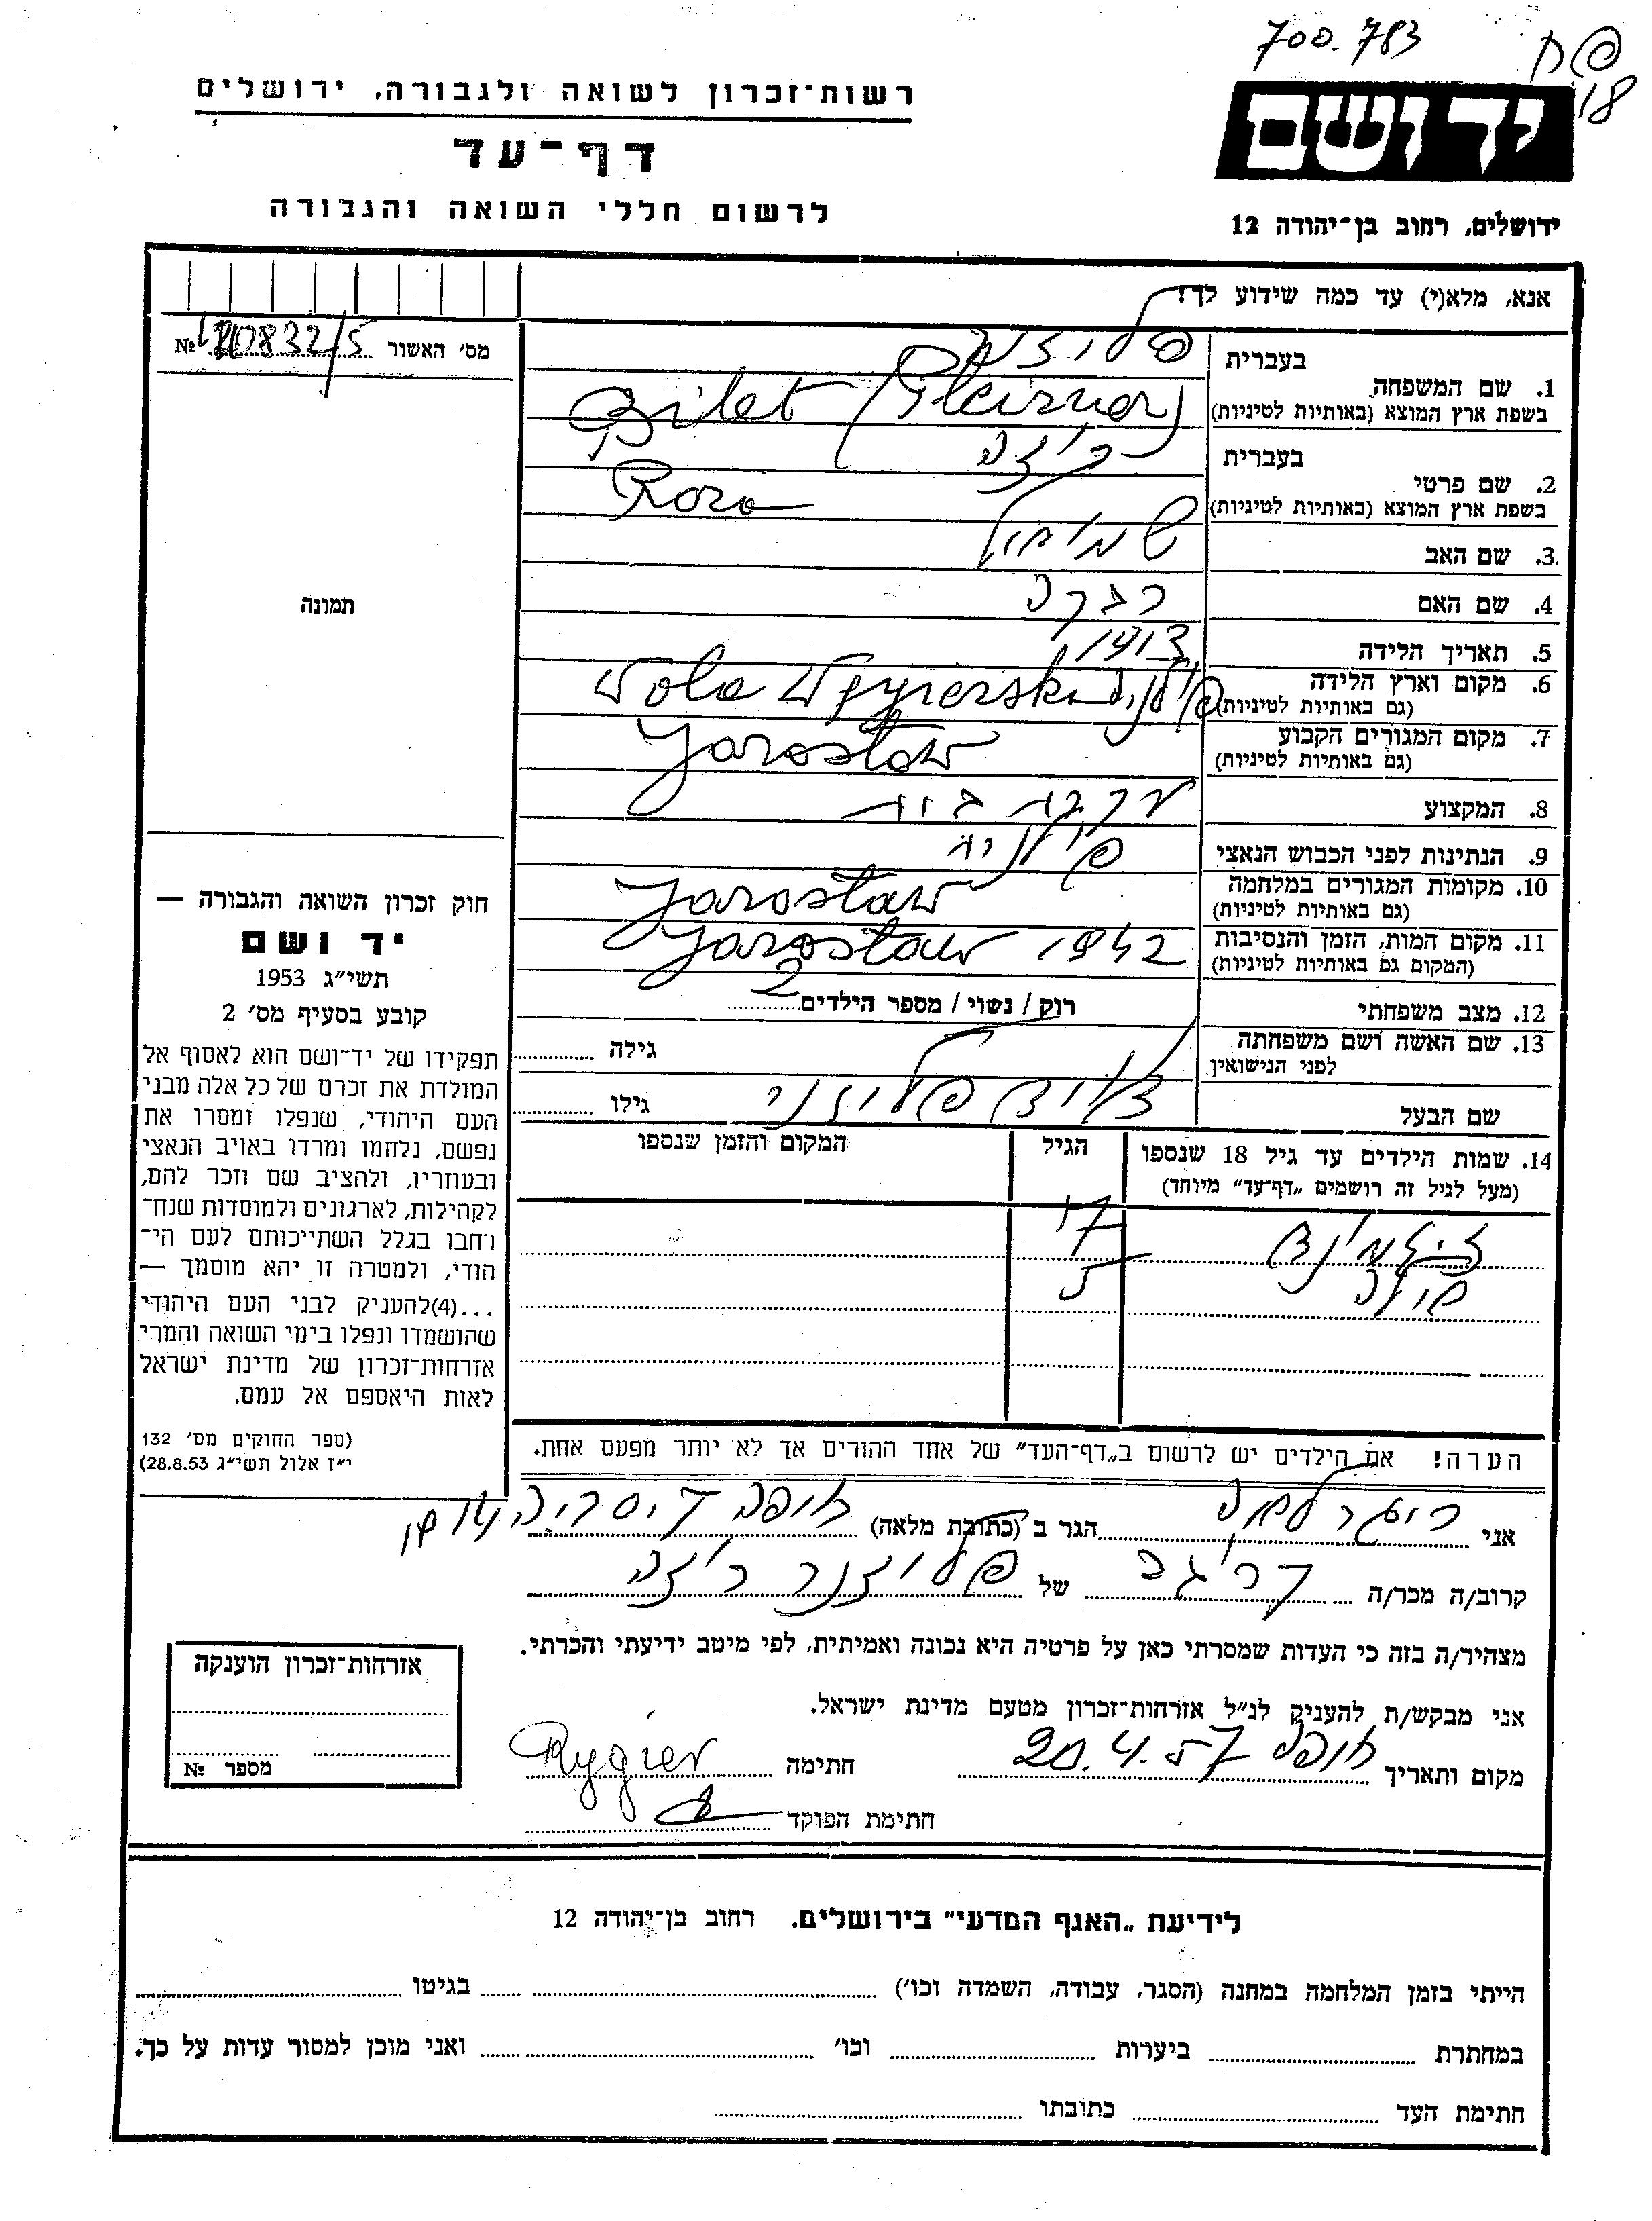 700.783
18
רשות־זכרון לשואה ולגבורה, ירושלים
דף־עד
לרשום חללי השואה והגבורה
יד ושם
ירושלים, רחוב בן־יהודה 12
אנא, מלא(י) עד כמה שידוע לך!
מס׳ האשור №
1. שם המשפחה בעברית
בשפת ארץ המוצא (באותיות לטיניות) Bilet
2. שם פרטי בעברית רוזה
בשפת ארץ המוצא (באותיות לטיניות) Roza
3. שם האב שמואל
4. שם האם רבקה
5. תאריך הלידה 1913
6. מקום וארץ הלידה פולניה Wola
(גם באותיות לטיניות)
7. מקום המגורים הקבוע Jarosław
(גם באותיות לטיניות)
8. המקצוע עקרת בית
9. הנתינות לפני הכבוש הנאצי פולנית
10. מקומות המגורים במלחמה Jarosław
(גם באותיות לטיניות)
11. מקום המות, הזמן והנסיבות 1942 Jarosław
(המקום גם באותיות לטיניות)
12. מצב משפחתי רוק / נשוי / מספר הילדים 2
13. שם האשה ושם משפחתה גילה
לפני הנישואין
שם הבעל גילו
14. שמות הילדים עד גיל 18 שנספו הגיל המקום והזמן שנספו
(מעל לגיל זה רושמים „דף־עד״ מיוחד)
17
5
תמונה
חוק זכרון השואה והגבורה —
יד ושם
תשי״ג 1953
קובע בסעיף מס׳ 2
תפקידו של יד־ושם הוא לאסוף אל
המולדת את זכרם של כל אלה מבני
העם היהודי, שנפלו ומסרו את
נפשם, נלחמו ומרדו באויב הנאצי
ובעוזריו, ולהציב שם וזכר להם,
לקהילות, לארגונים ולמוסדות שנח־
רחבו בגלל השתייכותם לעם הי־
הודי, ולמטרה זו יהא מוסמך —
...(4) להעניק לבני העם היהודי
שהושמדו ונפלו בימי השואה והמרי
אזרחות־זכרון של מדינת ישראל
לאות היאספם אל עמם.
(ספר החוקים מס׳ 132
י״ז אלול תשי״ג 28.8.53)
הערה! את הילדים יש לרשום ב„דף־העד״ של אחד ההורים אך לא יותר מפעם אחת.
אני הגר ב (כתובת מלאה) חופה
קרוב/ה מכר/ה של רוזה
מצהיר/ה בזה כי העדות שמסרתי כאן על פרטיה היא נכונה ואמיתית, לפי מיטב ידיעתי והכרתי.
אני מבקש/ת להעניק לנ״ל אזרחות־זכרון מטעם מדינת ישראל.
מקום ותאריך 20.4.57 חתימה Rygier
חתימת הפוקד
אזרחות־זכרון הוענקה
מספר №
לידיעת „האגף המדעי״ בירושלים, רחוב בן־יהודה 12
הייתי בזמן המלחמה במחנה (הסגר, עבודה, השמדה וכו׳) בגיטו
במחתרת ביערות וכו׳ ואני מוכן למסור עדות על כך.
חתימת העד כתובתו